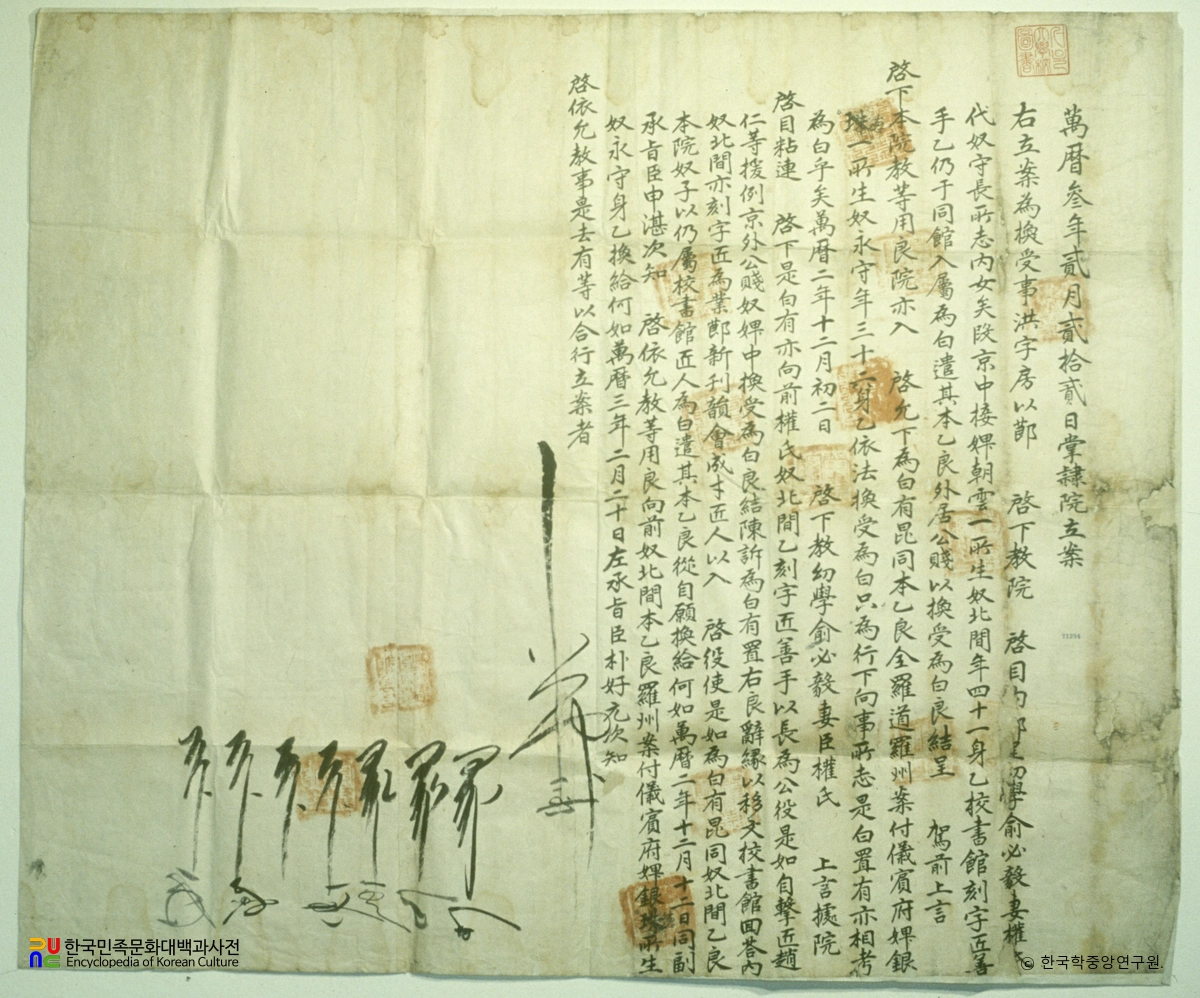 萬曆叁年貳月貳拾貳日掌隷院立案
右立案為換受事洪字房以節 啓下教院 啓目內 幼學俞必毅妻權
代奴守長所志內女矣段京中接婢朝雲一所生奴北間年四十一身乙校書館刻字匠善
手乙仍于同館入屬為白遣其本乙良外居公賤以換受為白良結呈 駕前上言
啓下本院教等用良院亦入 啓允下為白有昆同本乙良全羅道羅州案付儀賓府婢銀
珠一所生奴永守年三十二身乙依法換受為白只為行下向事所志是白置有亦相考
為白乎矣萬曆二年十二月初二日 啓下教幼學俞必毅妻臣權氏 上言據院
啓目粘連 啓下是白有亦向前權氏奴北間乙刻字匠善手以長為公役是如自擊匠趙
仁等援例京外公賤奴婢中換受為白良結陳訴為白有置右良辭緣以移文校書館回答內
奴北間亦刻字匠為業節新刊韻會成才匠人以入 啓役使是如為白有昆同奴北間乙良
本院奴子以仍屬校書館匠人為白遣其本乙良從自願換給何如萬曆二年十二月十二日同副
承旨臣申湛次知 啓依允教等用良向前奴北間本乙良羅州案付儀賓府婢銀珠所生
奴永守身乙換給何如萬曆三年二月二十日左承旨臣朴好元次知
啓依允教事是去有等以合行立案者
31294
한국민족문화대백과사전
Encyclopedia of Korean Culture
© 한국학중앙연구원.